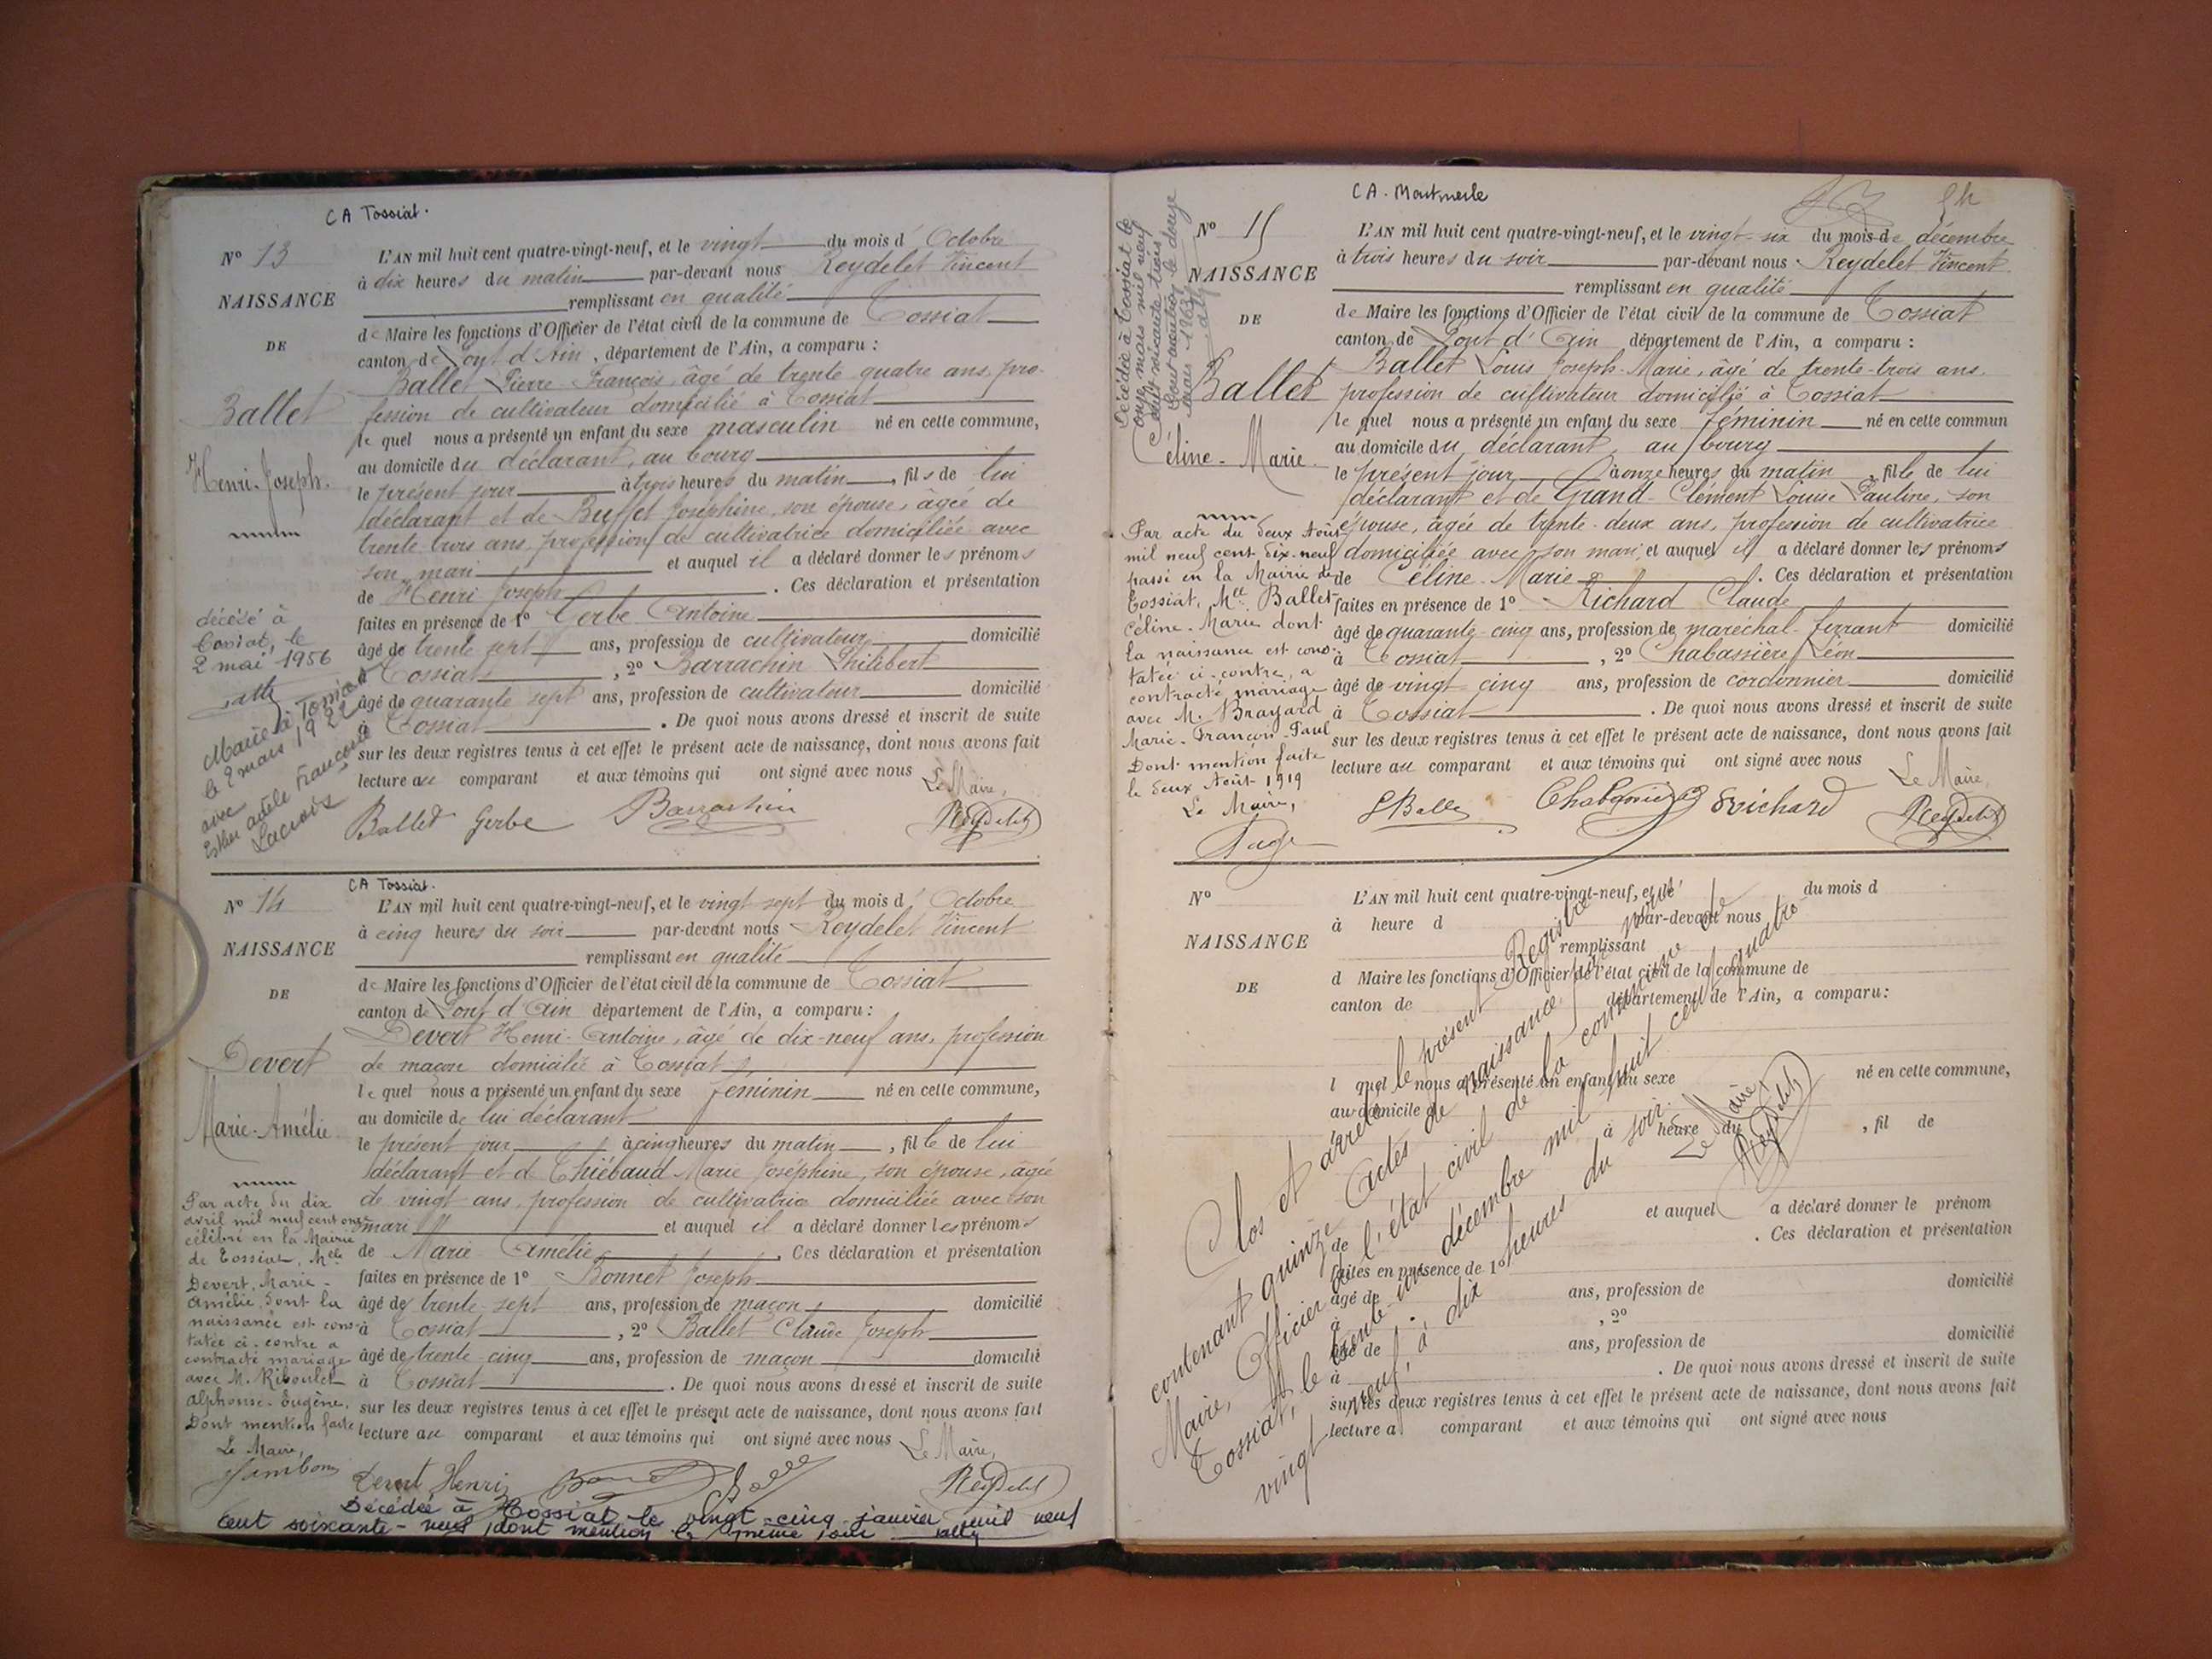 CA Tossiat.
Nº 13
NAISSANCE
DE
Ballet
Henri-Joseph.
décédé à
Tossiat, le
2 mai 1956
Marié à Tossiat
le 2 mars 1922
avec
Esther adèle Françoise
Lacroix
L'AN mil huit cent quatre-vingt-neuf, et le vingt du mois d' Octobre
à dix heures du matin par-devant nous Reydelet Vincent
remplissant en qualité
de Maire les fonctions d'Officier de l'état civil de la commune de Tossiat
canton de Pont d'Ain, département de l'Ain, a comparu :
Ballet Pierre-François, âgé de trente quatre ans, pro-
fession de cultivateur domicilié à Tossiat
le quel nous a présenté un enfant du sexe masculin né en cette commune,
au domicile du déclarant, au bourg
le présent jour à trois heures du matin, fils de lui
déclarant et de Buffet Joséphine, son épouse, âgée de
trente trois ans, profession de cultivatrice domiciliée avec
son mari et auquel il a déclaré donner les prénoms
de Henri Joseph. Ces déclaration et présentation
faites en présence de 1º Gerbe Antoine
âgé de trente sept ans, profession de cultivateur domicilié
à Tossiat, 2º Barrachin Philibert
âgé de quarante sept ans, profession de cultivateur domicilié
à Tossiat. De quoi nous avons dressé et inscrit de suite
sur les deux registres tenus à cet effet le présent acte de naissance, dont nous avons fait
lecture au comparant et aux témoins qui ont signé avec nous Le Maire,
Ballet Gerbe Barrachin Reydelet
CA Tossiat.
Nº 14
NAISSANCE
DE
Devert
Marie-Amélie.
Par acte du dix
avril mil neuf cent onze
célébré en la Mairie
de Tossiat, Mlle
Devert, Marie-
Amélie, dont la
naissance est cons-
tatée ci-contre a
contracté mariage
avec M. Riboulet
Alphonse-Eugène.
Dont mention faite
Le Maire,
L'AN mil huit cent quatre-vingt-neuf, et le vingt sept du mois d' Octobre
à cinq heures du soir par-devant nous Reydelet Vincent
remplissant en qualité
de Maire les fonctions d'Officier de l'état civil de la commune de Tossiat
canton de Pont d'Ain département de l'Ain, a comparu :
Devert Henri-Antoine, âgé de dix-neuf ans, profession
de maçon domicilié à Tossiat
le quel nous a présenté un enfant du sexe féminin né en cette commune,
au domicile de lui déclarant
le présent jour à cinq heures du matin, fille de lui
déclarant et d Thiébaud Marie Joséphine, son épouse, âgée
de vingt ans, profession de cultivatrice domiciliée avec son
mari et auquel il a déclaré donner les prénoms
de Marie Amélie. Ces déclaration et présentation
faites en présence de 1º Bonnet Joseph
âgé de trente-sept ans, profession de maçon domicilié
à Tossiat, 2º Ballet Claude Joseph
âgé de trente cinq ans, profession de maçon domicilié
à Tossiat. De quoi nous avons dressé et inscrit de suite
sur les deux registres tenus à cet effet le présent acte de naissance, dont nous avons fait
lecture au comparant et aux témoins qui ont signé avec nous Le Maire,
Devert Henri Reydelet
Décédée à Tossiat le vingt-cinq janvier mil neuf
cent soixante-neuf dont mention le même jour
CA. Montmerle
Nº 15
NAISSANCE
DE
Ballet
Céline-Marie.
Décédée à Tossiat le
onze mars mil neuf
cent soixante trois
Dont mention le douze
mars 1963
Par acte du deux Août
mil neuf cent dix-neuf
passé en la Mairie de
Tossiat, Mlle Ballet
Céline-Marie dont
la naissance est cons-
tatée ci-contre, a
contracté mariage
avec M. Brayard
Marie-François-Paul
Dont mention faite
le deux Août 1919
Le Maire,
Page
L'AN mil huit cent quatre-vingt-neuf, et le vingt-six du mois de décembre
à trois heures du soir par-devant nous Reydelet Vincent
remplissant en qualité
de Maire les fonctions d'Officier de l'état civil de la commune de Tossiat
canton de Pont d'Ain département de l'Ain, a comparu :
Ballet Louis Joseph-Marie, âgé de trente-trois ans,
profession de cultivateur domicilié à Tossiat
le quel nous a présenté un enfant du sexe féminin né en cette commun
au domicile du déclarant, au bourg
le présent jour à onze heures du matin, fille de lui
déclarant et de Grand-Clément Louise Pauline, son
épouse, âgée de trente-deux ans, profession de cultivatrice
domiciliée avec son mari, et auquel il a déclaré donner les prénoms
de Céline-Marie. Ces déclaration et présentation
faites en présence de 1º Richard Claude
âgé de quarante-cinq ans, profession de maréchal-ferrant domicilié
à Tossiat, 2º Chabassière Léon
âgé de vingt cinq ans, profession de cordonnier domicilié
à Tossiat. De quoi nous avons dressé et inscrit de suite
sur les deux registres tenus à cet effet le présent acte de naissance, dont nous avons fait
lecture au comparant et aux témoins qui ont signé avec nous Le Maire,
Richard Reydelet
Nº
NAISSANCE
DE
L'AN mil huit cent quatre-vingt-neuf, et le du mois d
à heure d par-devant nous
remplissant
d Maire les fonctions d'Officier de l'état civil de la commune de
canton de département de l'Ain, a comparu :
l quel nous a présenté un enfant du sexe né en cette commune,
au domicile d
à heure du , fil de
et auquel a déclaré donner le prénom
de . Ces déclaration et présentation
faites en présence de 1º
âgé de ans, profession de domicilié
à , 2º
âgé de ans, profession de domicilié
à . De quoi nous avons dressé et inscrit de suite
sur les deux registres tenus à cet effet le présent acte de naissance, dont nous avons fait
lecture a comparant et aux témoins qui ont signé avec nous
Clos et arrêté le présent Registre
contenant quinze Actes de naissance, par nous
Maire, Officier de l'état civil de la commune de
Tossiat, le trente-un décembre mil huit cent quatre-
vingt neuf, à dix heures du soir.
Le Maire,
Reydelet